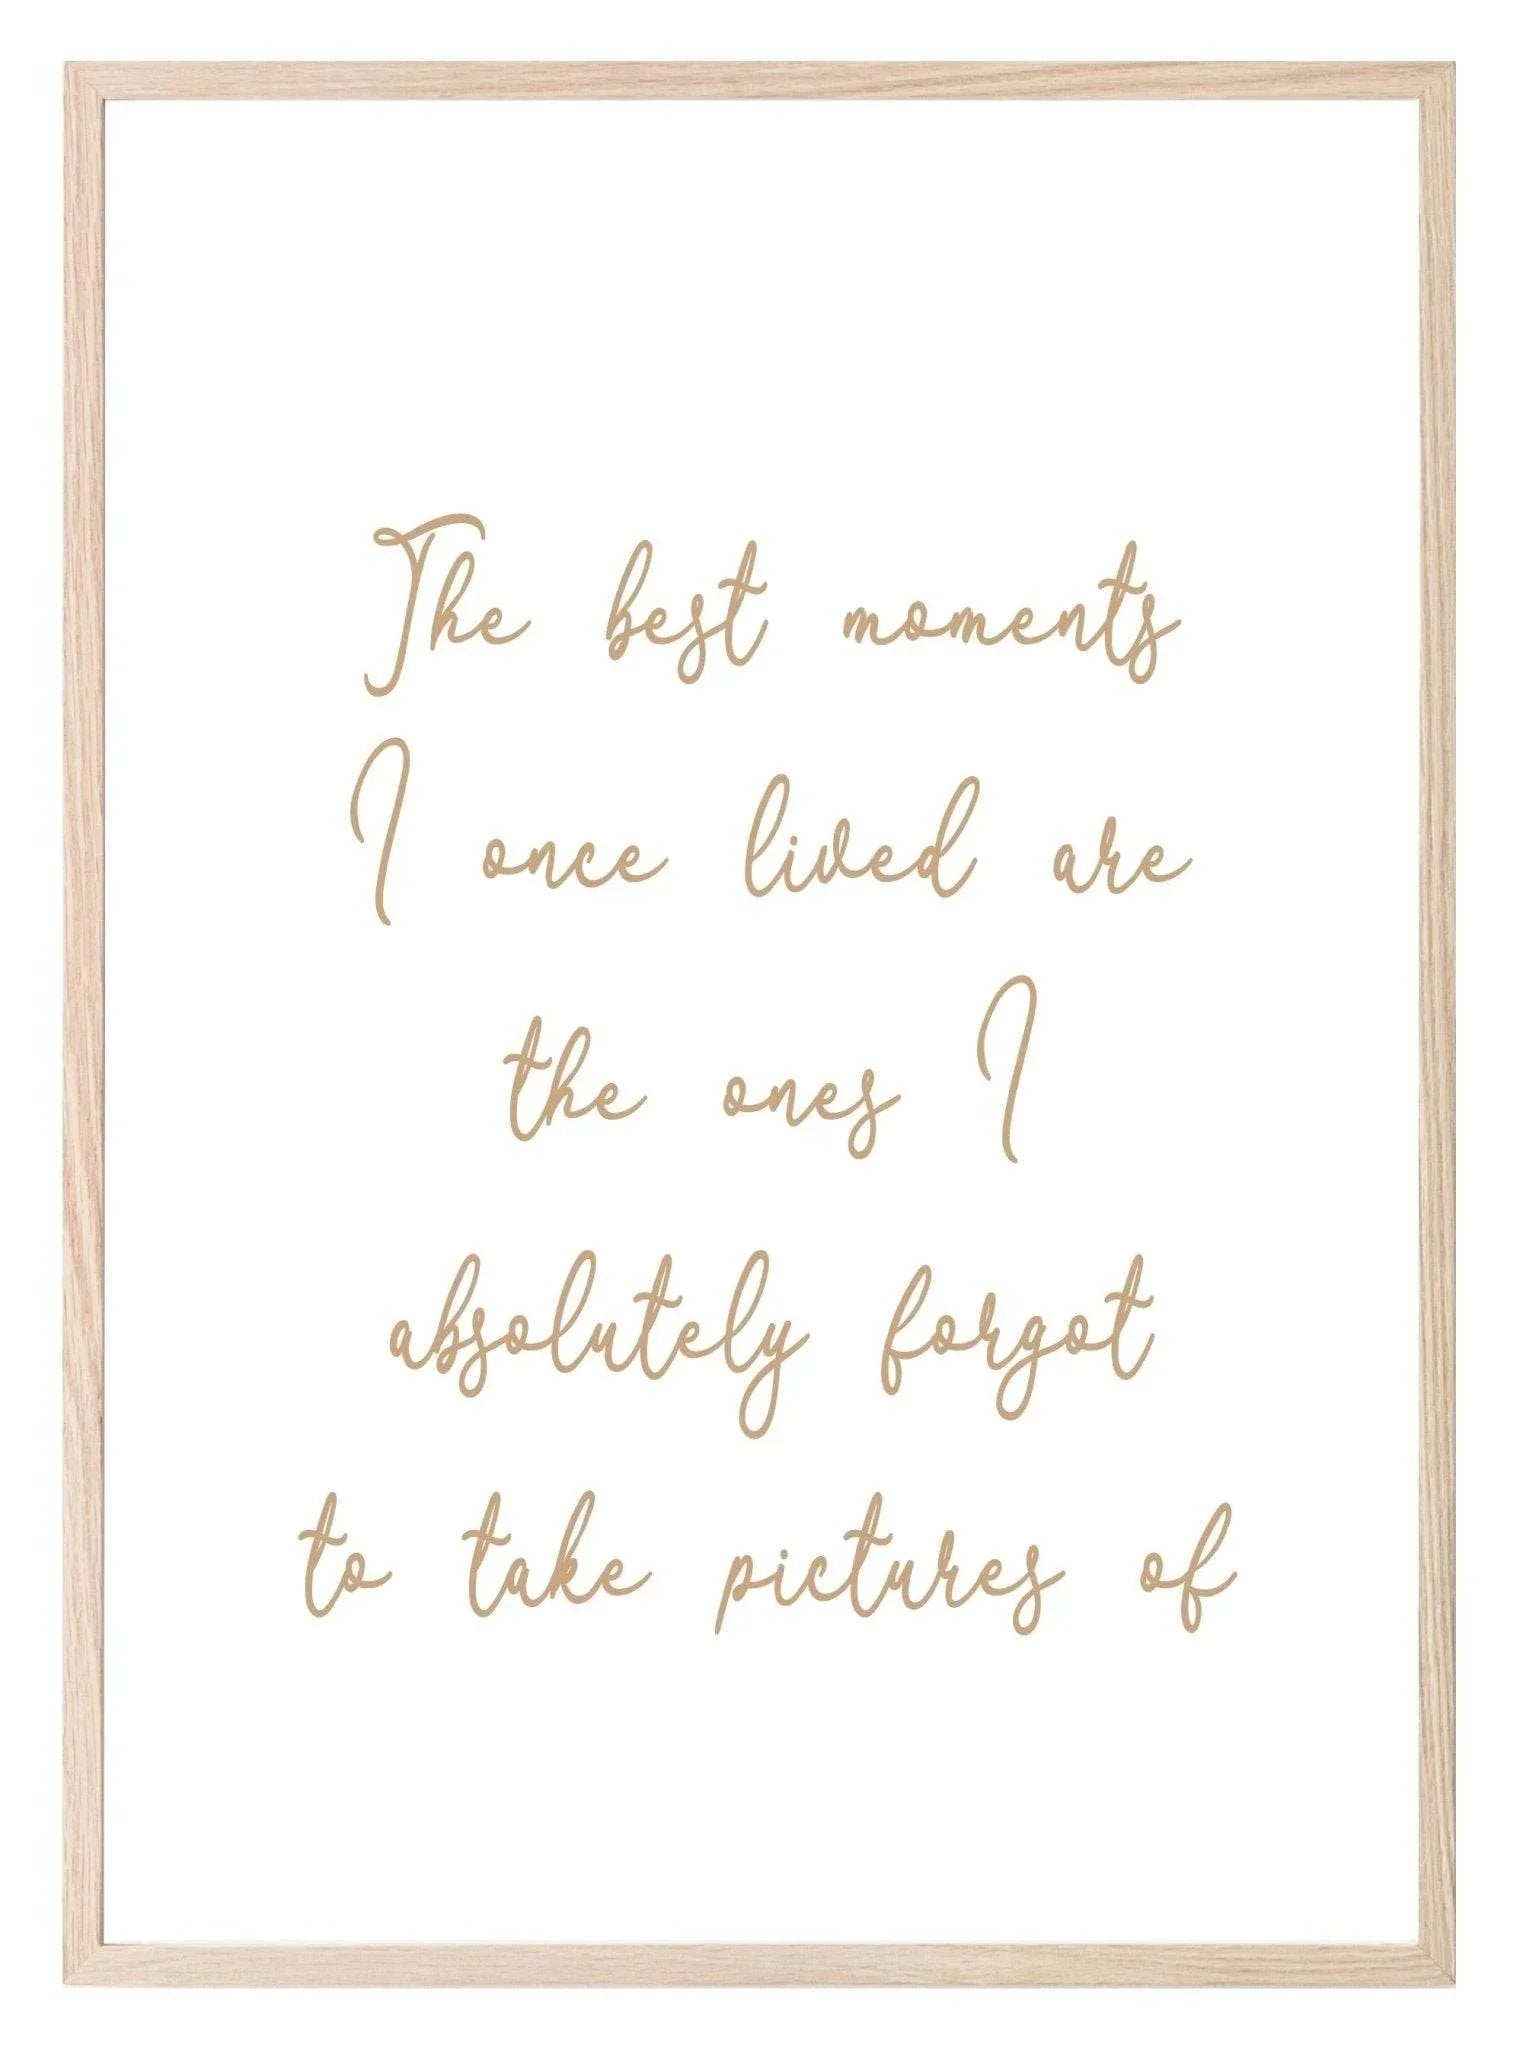 The best moments
I once lived are
the ones I
absolutely forgot
to take pictures of